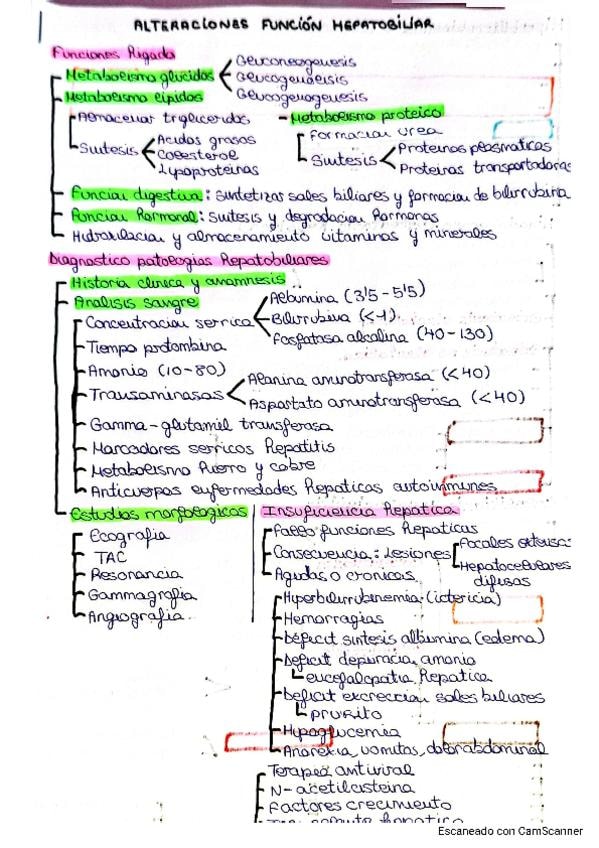 ALTERACIONES FUNCIÓN HEPATOBILIAR
Funciones hígado
Metabolismo glúcidos
Gluconeogenesis
Glucogenolisis
Glucogenogenesis
Metabolismo lípidos
Almacenar trigliceridos
Síntesis
Acidos grasos
Colesterol
Lipoproteinas
Metabolismo proteico
Formacion urea
Sintesis
Proteinas plasmaticas
Proteinas transportadoras
Funcion digestiva: sintetizar sales biliares y formacion de bilirrubina
Funcion hormonal: sintesis y degradacion hormonas
y almacenamiento vitaminas y minerales
Diagnostico patologias hepatobiliares
Historia clinica y anamnesis
Analisis sangre
Concentracion serica
Albumina (3'5-5'5)
Bilirrubina (<1)
Fosfatasa alcalina (40-130)
Tiempo protombina
Amonio (10-80)
Transaminasas
Alanina aminotransferasa (<40)
Aspartato aminotransferasa (<40)
Gamma-glutamil transferasa
Marcadores sericos hepatitis
Metabolismo hierro y cobre
Anticuerpos enfermedades hepaticas autoinmunes
Estudios morfologicos
Ecografia
TAC
Resonancia
Gammagrafia
Angiografia
Insuficiencia hepatica
Fallo funciones hepaticas
Consecuencia: lesiones
Focales extensas
Hepatocelulares
difusas
Agudas o cronicas
Hiperbilirrubinemia (ictericia)
Hemorragias
Déficit sintesis albumina (edema)
Deficit depuracion amonio
encefalopatia hepatica
Deficit excrecion sales biliares
prurito
Hipoglucemia
Anorexia, vomitos, dolor abdominal
Terapia antiviral
N-acetilcisteina
Factores crecimiento
Escaneado con CamScanner